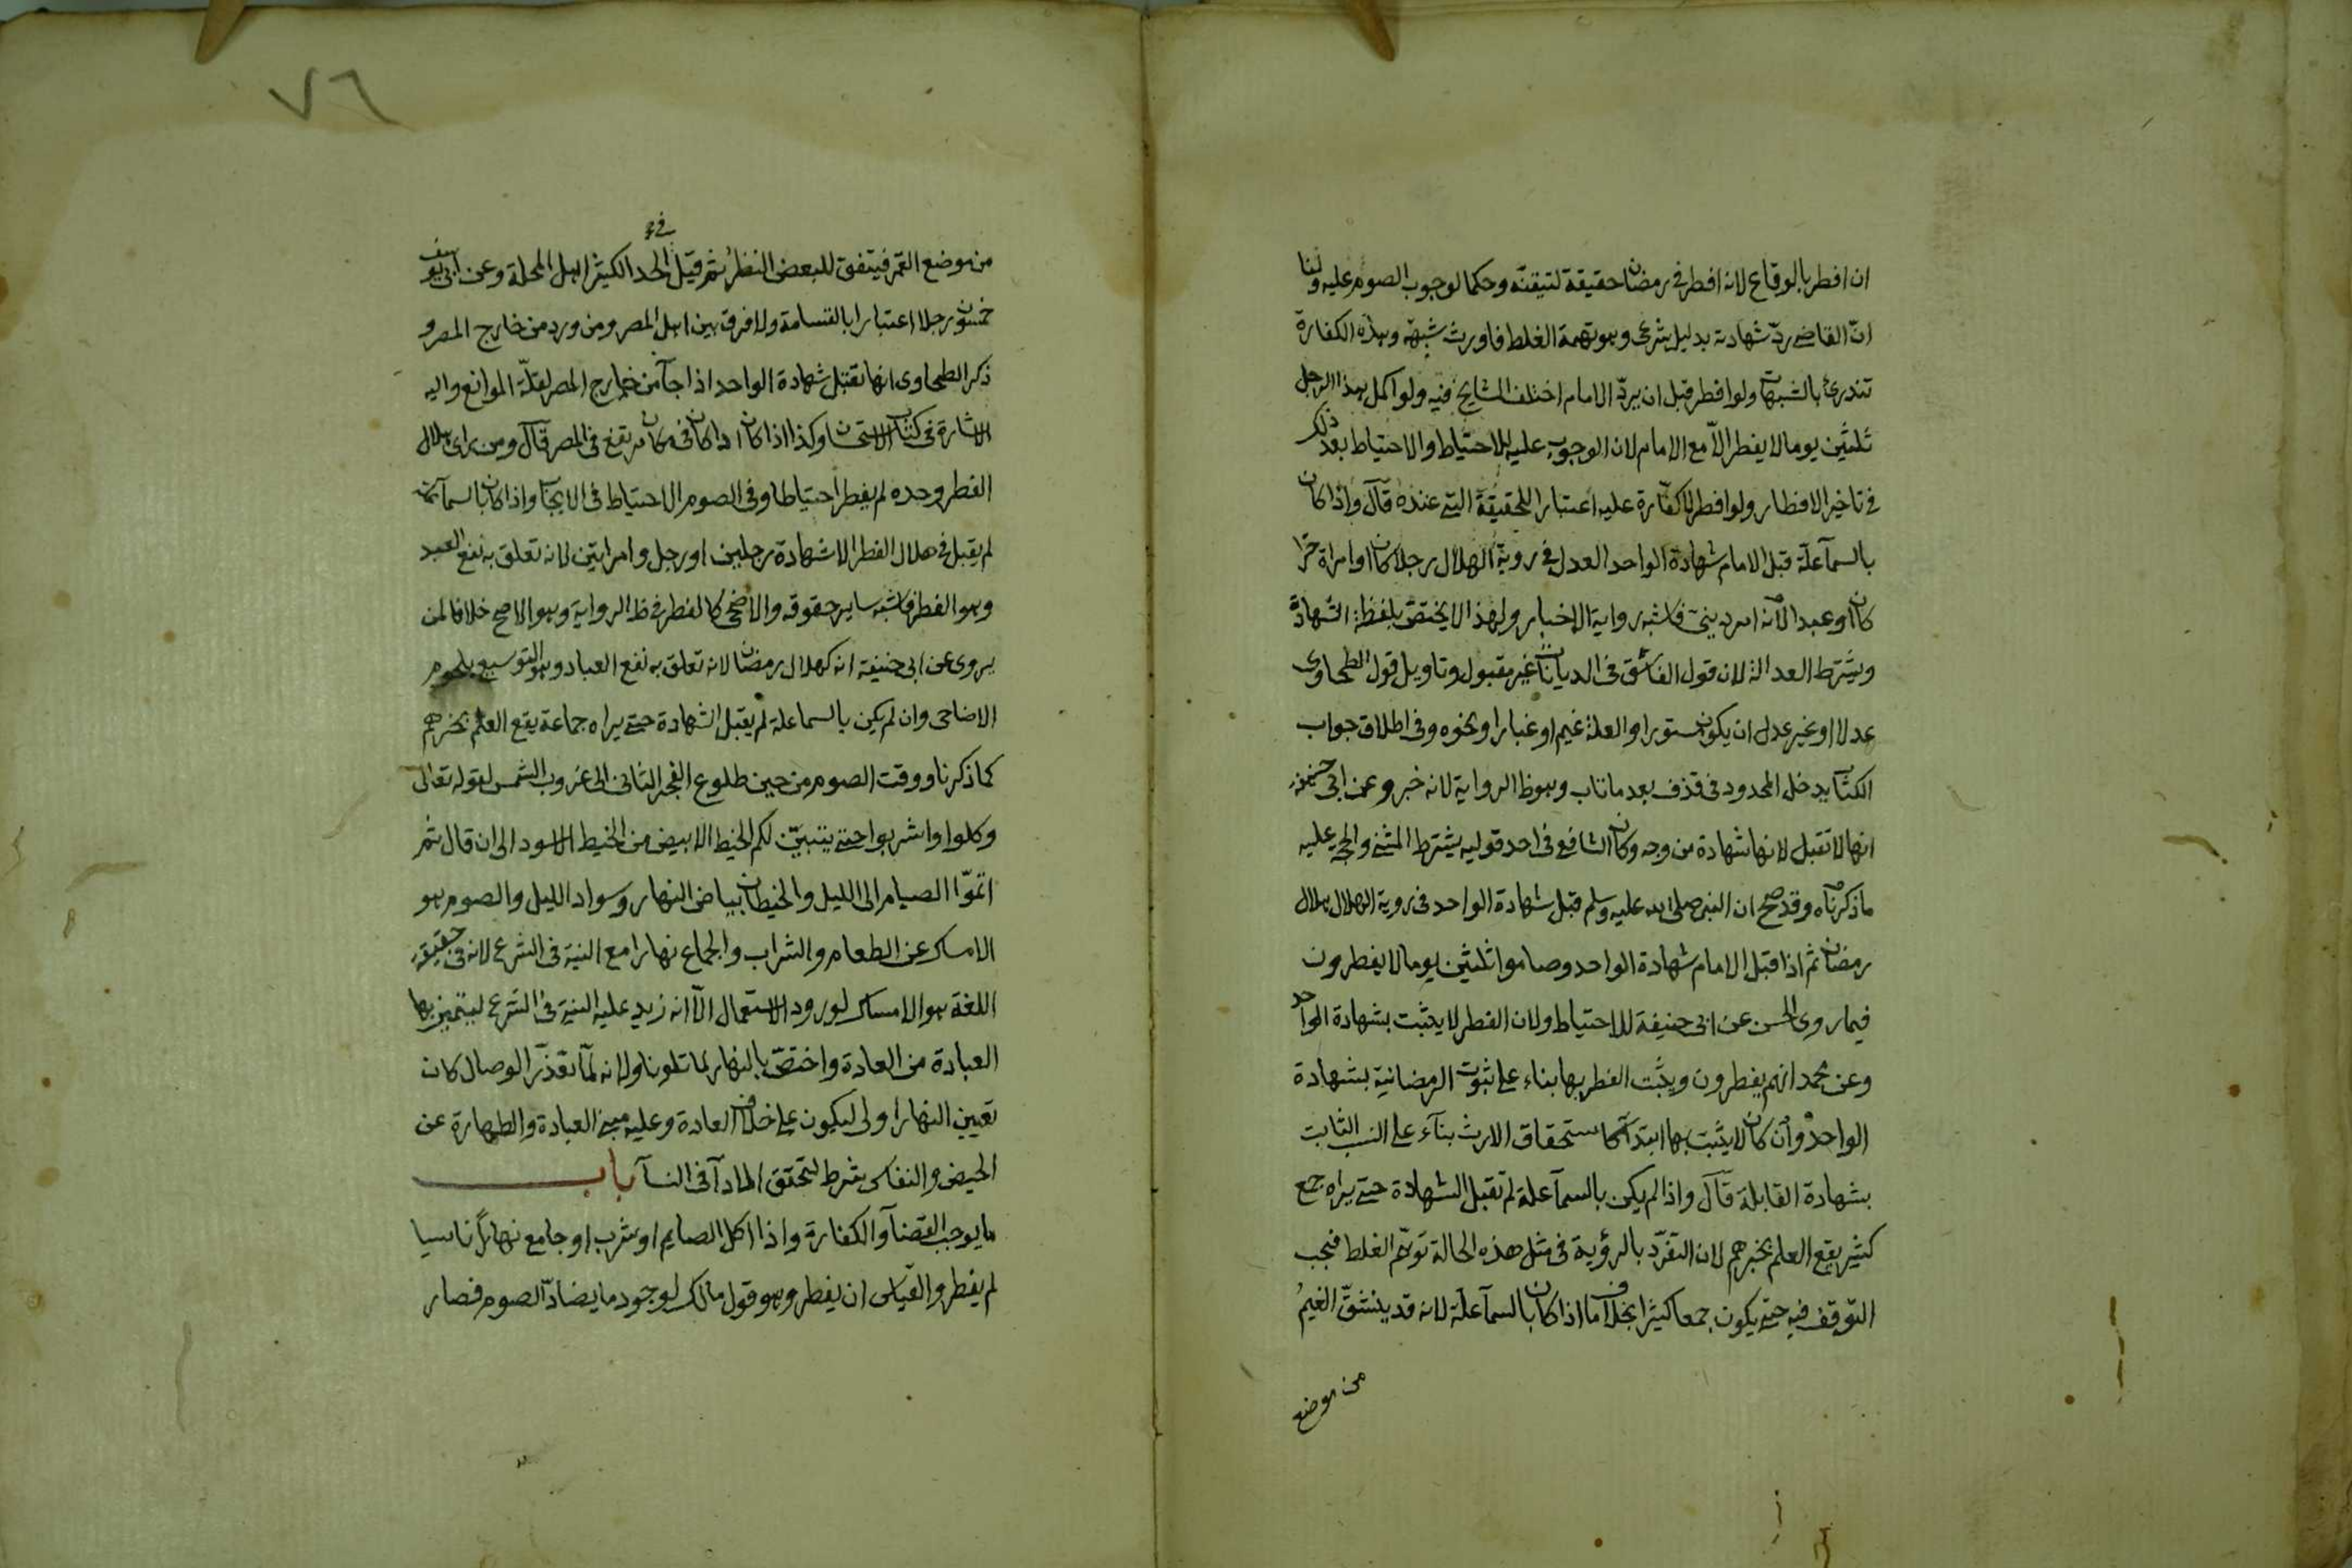 ان افطر بالوقاع لانه افطر في رمضان حقيقة لتيقنه وحكما لوجوب الصوم عليه ولنا
انّ القاضي ردّ شهادته بدليل شرعي وهو تهمة الغلط فاورث شبهة وهذه الكفارة
تندرئ بالشبهات ولو افطر قبل ان يردّ الامام اختلف المشايخ فيه ولو اكمل هذا الرجل
ثلثين يوما لا يفطر الّا مع الامام لان الوجوب عليه للاحتياط والاحتياط بعد ذلك
في تاخير الافطار ولو افطر لا كفّارة عليه اعتبارا للحقيقة التي عنده قال واذا كان
بالسمآء علّة قبل الامام شهادة الواحد العدل في روية الهلال رجلا كان او امراة حرّا
كان او عبدا لانه امر ديني فاشبه رواية الاخبار ولهذا لا يختصّ بلفظة الشهادة
ويشترط العدالة لان قول الفاسق في الديانات غير مقبول وتاويل قول الطحاوى
عدلا او غير عدل ان يكون مستورا والعلة غيم او غبار او نحوه وفي اطلاق جواب
الكتاب يدخل المحدود في قذف بعد ما تاب وهو ظ الرواية لانه خبر وعن ابي حنيفة
انها لا تقبل لانها شهادة من وجه وكان الشافعي في احد قوليه يشترط المثنى والحجة عليه
ما ذكرناه وقد صح ان النبي صلى الله عليه وسلم قبل شهادة الواحد في روية الهلال هلال
رمضان ثم اذا قبل الامام شهادة الواحد وصاموا ثلثين يوما لا يفطرون
فيما روى الحسن عن ابي حنيفة للاحتياط ولان الفطر لا يثبت بشهادة الواحد
وعن محمد انهم يفطرون ويثبت الفطر بها بناء على ثبوت الرمضانية بشهادة
الواحد وان كان لا يثبت بها ابتدآء كاستحقاق الارث بنآء على النسب الثابت
بشهادة القابلة قال واذا لم يكن بالسمآء علة لم تقبل الشهادة حتى يراه جمع
كثير يقع العلم بخبرهم لان التفرّد بالرؤية في مثل هذه الحالة توهّم الغلط فيجب
التوقف فيه حتى يكون جمعا كثيرا بخلاف ما اذا كان بالسمآء علّة لانه قد ينشقّ الغيم
من موضع
٧٦
من موضع القمر فيتفق للبعض النظر ثم قيل في حد الكثير اهل المحلة وعن ابي يوسف
خمسون رجلا اعتبارا بالقسامة ولا فرق بين اهل المصر ومن ورد من خارج المصر و
ذكر الطحاوى انها تقبل شهادة الواحد اذا جآء من خارج المصر لقلّة الموانع واليه
الاشارة في كتاب الاستحسان وكذا اذا كان اذا كان في مكان مرتفع في المصر قال ومن راى هلال
الفطر وحده لم يفطر احتياطا وفي الصوم الاحتياط في الايجاب واذا كان بالسمآء علة
لم يقبل في هلال الفطر الا شهادة رجلين او رجل وامراتين لانه تعلق به نفع العبد
وهو الفطر فاشبه ساير حقوقه والاضحى كالفطر في ظ الرواية وهو الاصح خلافا لمن
يروى عن ابي حنيفة انه كهلال رمضان لانه تعلق به نفع العباد وهو التوسيع بلحوم
الاضاحى وان لم يكن بالسما علة لم يقبل الشهادة حتى يراه جماعة يقع العلم بخبرهم
كما ذكرنا ووقت الصوم من حين طلوع الفجر الثانى الى غروب الشمس لقوله تعالى
وكلوا واشربوا حتى يتبيّن لكم الخيط الابيض من الخيط الاسود الى ان قال ثم
اتمّوا الصيام الى الليل والخيطان بياض النهار وسواد الليل والصوم هو
الامساك عن الطعام والشراب والجماع نهارا مع النية في الشرع لانه في حقيقة
اللغة هو الامساك لورود الاستعمال الّا انه زيد عليه النية في الشرع ليتميز بها
العبادة من العادة واختصّ بالنهار لما تلونا ولانه لمّا تعذّر الوصال كان
تعيين النهار اولى ليكون على خلاف العادة وعليه مبنى العبادة والطهارة عن
الحيض والنفاس شرط لتحقق الادآء في النسآء باب
ما يوجب القضآء والكفارة واذا اكل الصايم او شرب او جامع نهارًا ناسيا
لم يفطر والقياس ان يفطر وهو قول مالك لوجود ما يضادّ الصوم فصار